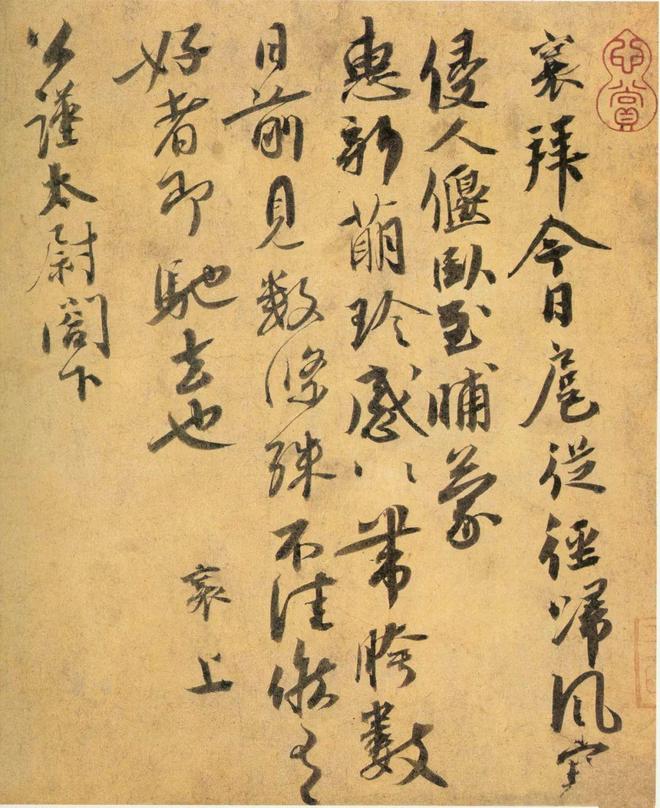 心賞
襄拜今日扈從徑歸風寒
侵人偃臥至晡蒙
惠新萌珍感〻帶胯數
日前見數條殊不佳候有
好者即馳去也
襄上
公謹太尉閤下